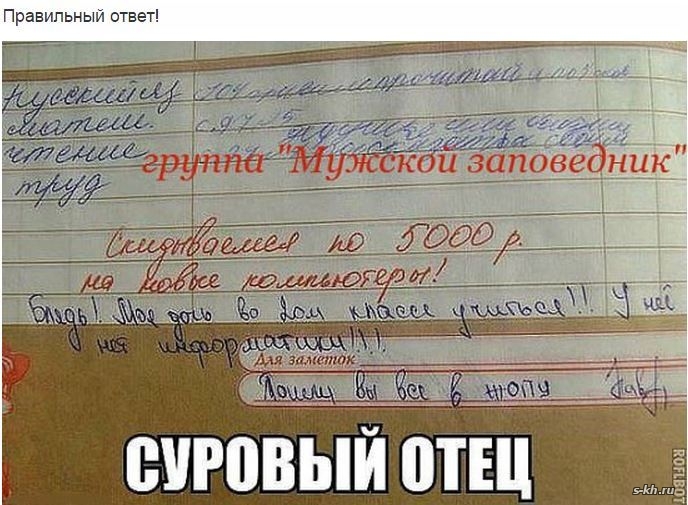 Правильный ответ!
Русский яз 104 прочитай и
матем. с. 97 15
чтение
труд
группа "Мужской заповедник"
Скидываемся по 5000 р.
на новые компьютеры!
Блядь! Моя дочь во 2ом классе учиться!!! У неё
нет информатики!!!!
Для заметок
Пошли вы все в жопу
СУРОВЫЙ ОТЕЦ
ROFLBOT
s-kh.ru